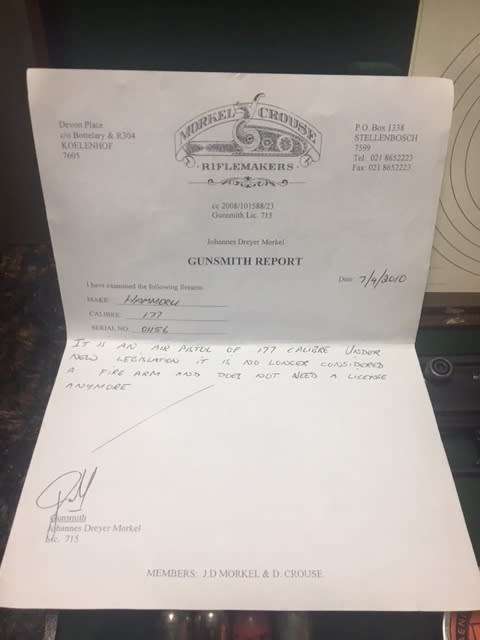 Devon Place
c/o Bottelary & R304
KOELENHOF
7605
MORKEL CROUSE
RIFLEMAKERS
P O Box 1338
STELLENBOSCH
7599
Tel: 021 8652223
Fax: 021 8652223
cc 2008/101588/23
Gunsmith Lic. 715
Johannes Dreyer Morkel
GUNSMITH REPORT
Date: 7/9/2010
I have examined the following firearm:
MAKE: HAMMERLI
CALIBRE: 177
SERIAL NO. 01156
IT IS AN AIR PISTOL OF 177 CALIBRE UNDER
NEW LEGISLATION IT IS NO LONGER CONSIDERED
A FIRE ARM AND DOES NOT NEED A LICENSE
ANYMORE
Gunsmith
Johannes Dreyer Morkel
Lic. 715
MEMBERS: J.D MORKEL & D. CROUSE